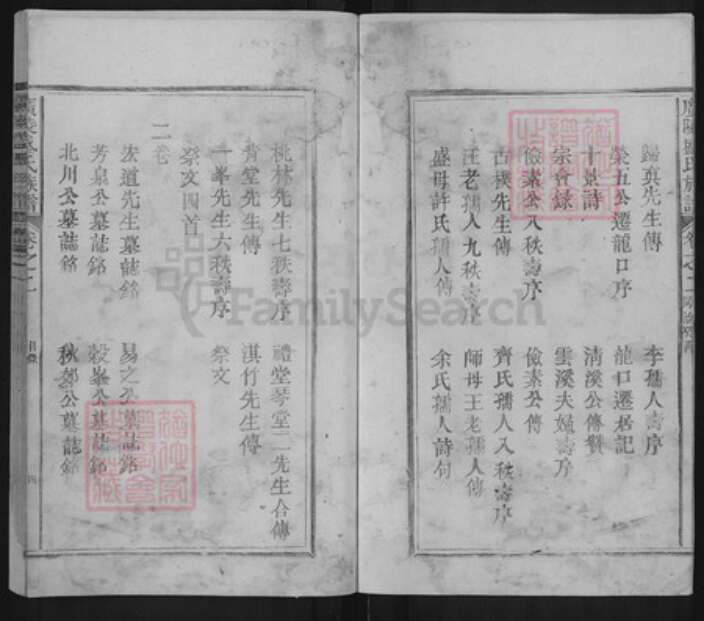 歸真先生傳　李孺人壽序
榮五公遷龍口序　龍口遷居記
十景詩　清溪公傳贊
宗會錄　雲溪夫婦壽序
儉素公八秩壽序　儉素公傳
古樸先生傳　齊氏孺人八秩壽序
汪老孺人九秩壽序　師母王老孺人傳
盛母許氏孺人傳　余氏孺人詩句
桃林先生七秩壽序　禮堂琴堂二先生合傳
肯堂先生傳　淇竹先生傳
一峯先生六秩壽序　祭文
祭文四首
二卷
宏道先生墓誌銘　易之公墓誌銘
芳泉公墓誌銘　毅峯公墓誌銘
北川公墓誌銘　秋郊公墓誌銘
氏族譜
目錄
四
FamilySearch